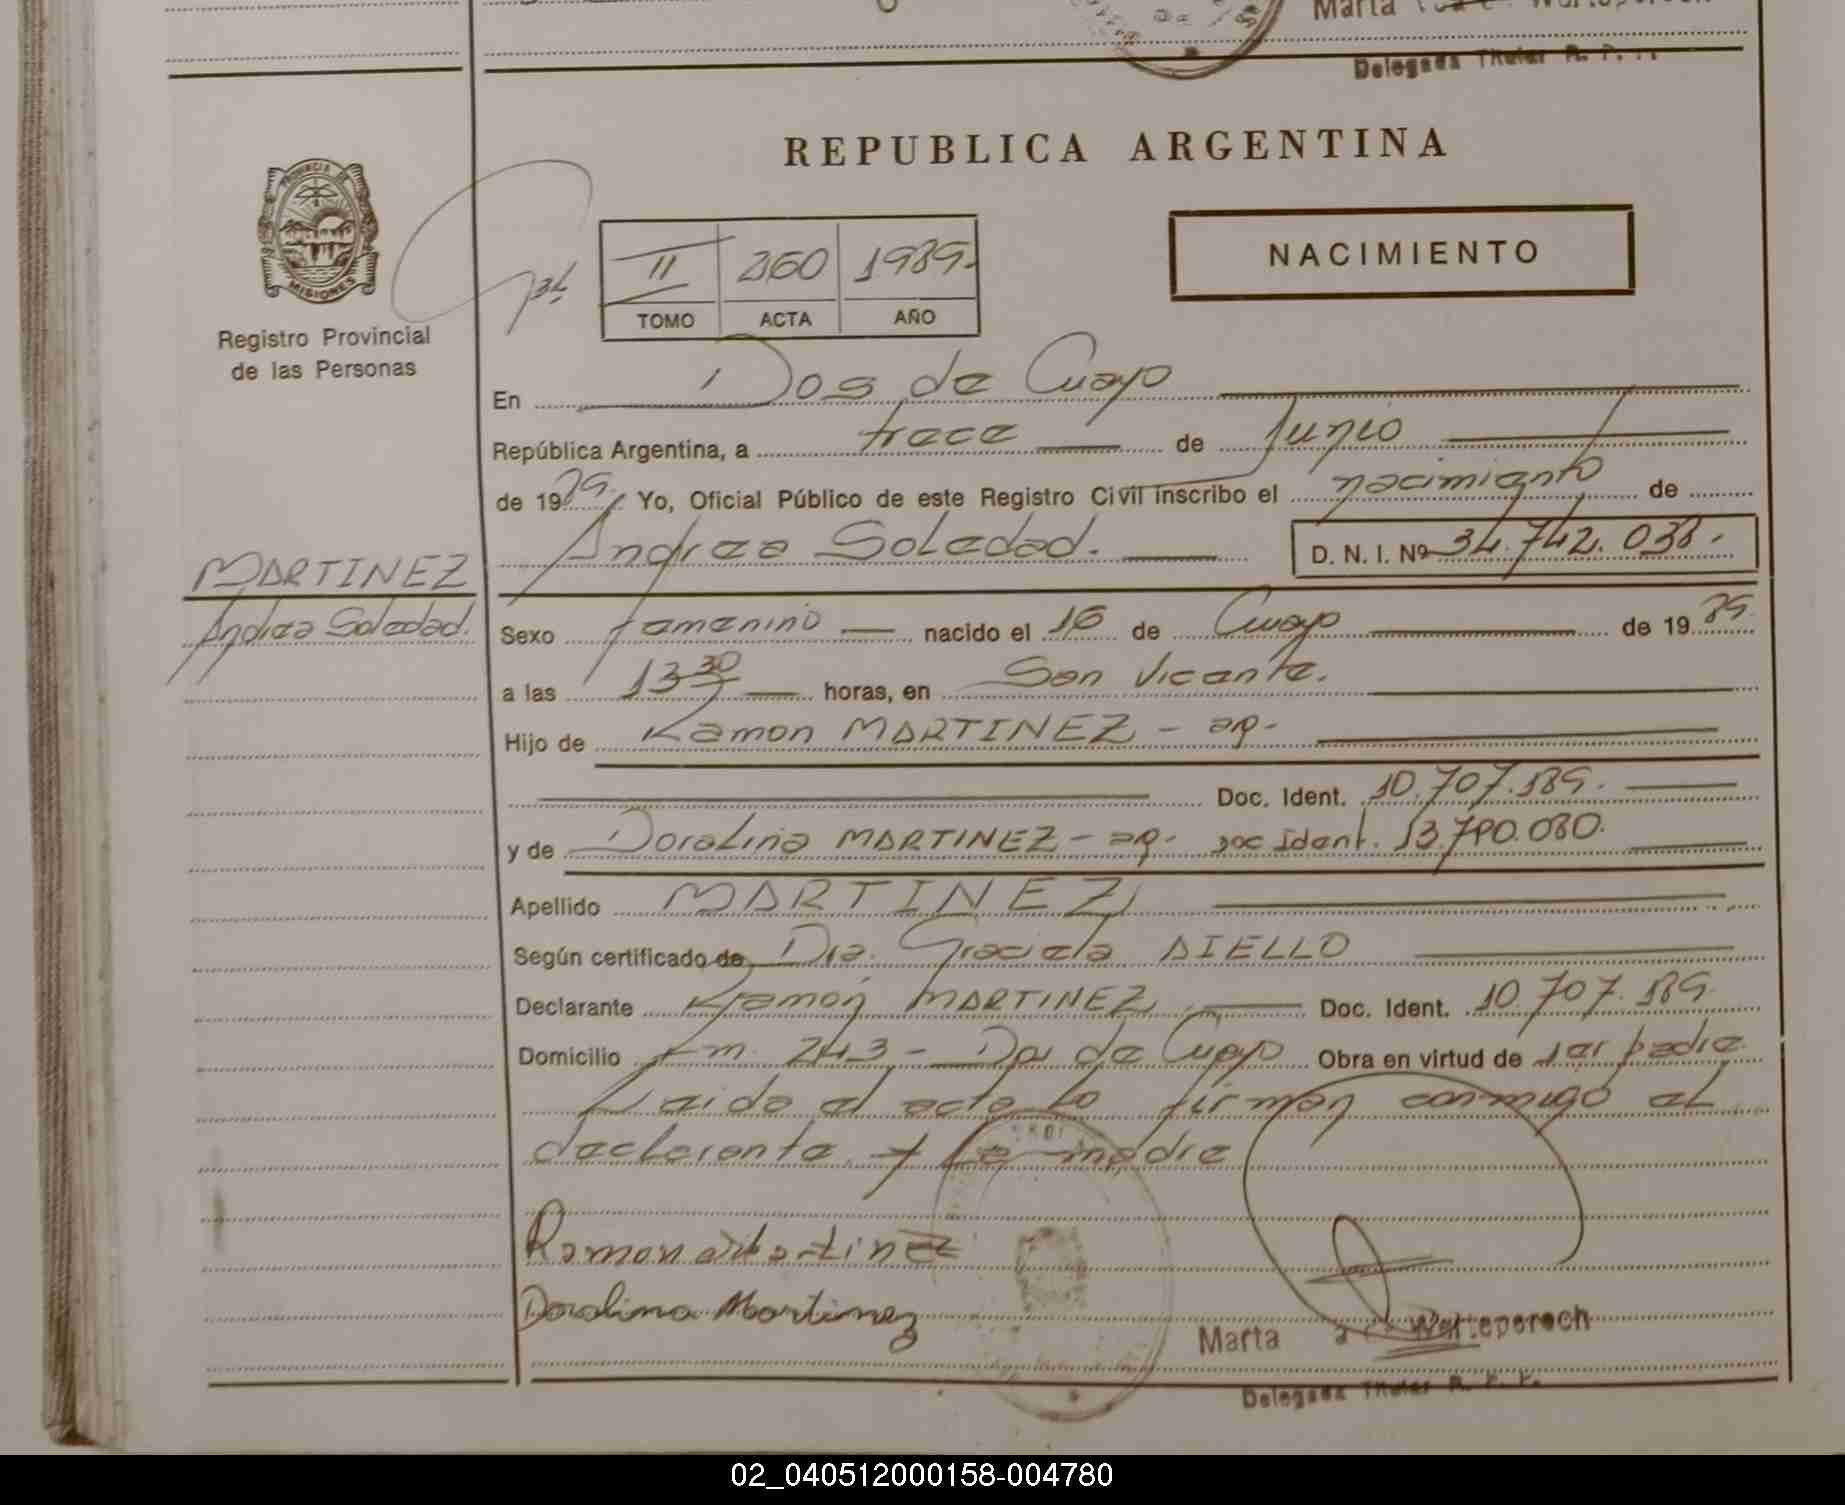 Marta
Delegada Titular R. P. P.
REPUBLICA ARGENTINA
PROVINCIA DE
MISIONES
Registro Provincial
de las Personas
II 260 1989.
TOMO ACTA AÑO
NACIMIENTO
En Dos de Mayo
República Argentina, a trece de Junio
de 1989. Yo, Oficial Público de este Registro Civil inscribo el nacimiento de
Andrea Soledad. D. N. I. Nº 34.742.038.
MARTINEZ
Andrea Soledad.
Sexo femenino nacido el 16 de Mayo de 1989.
a las 13 30 horas, en San Vicente.
Hijo de Ramon MARTINEZ - arg.
Doc. Ident. 10.707.189.
y de Doralina MARTINEZ - arg. Doc Ident. 13.790.080.
Apellido MARTINEZ
Según certificado de Dra. Graciela AIELLO
Declarante Ramón MARTINEZ Doc. Ident. 10.707.189
Domicilio Km. 243 - Dos de Mayo Obra en virtud de ser padre
Leida el acta lo firman conmigo el
declarante y la madre
Ramon Martinez
Doralina Martinez
Marta Werteperoch
Delegada Titular R. P. P.
02_040512000158-004780